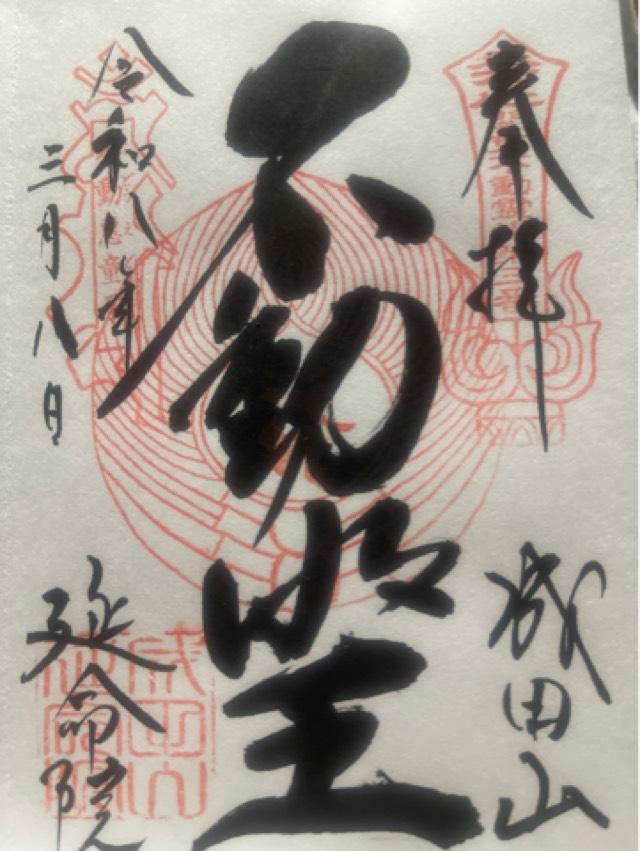 奉拝
成田山
不動明王
令和八年
三月八日
延命院